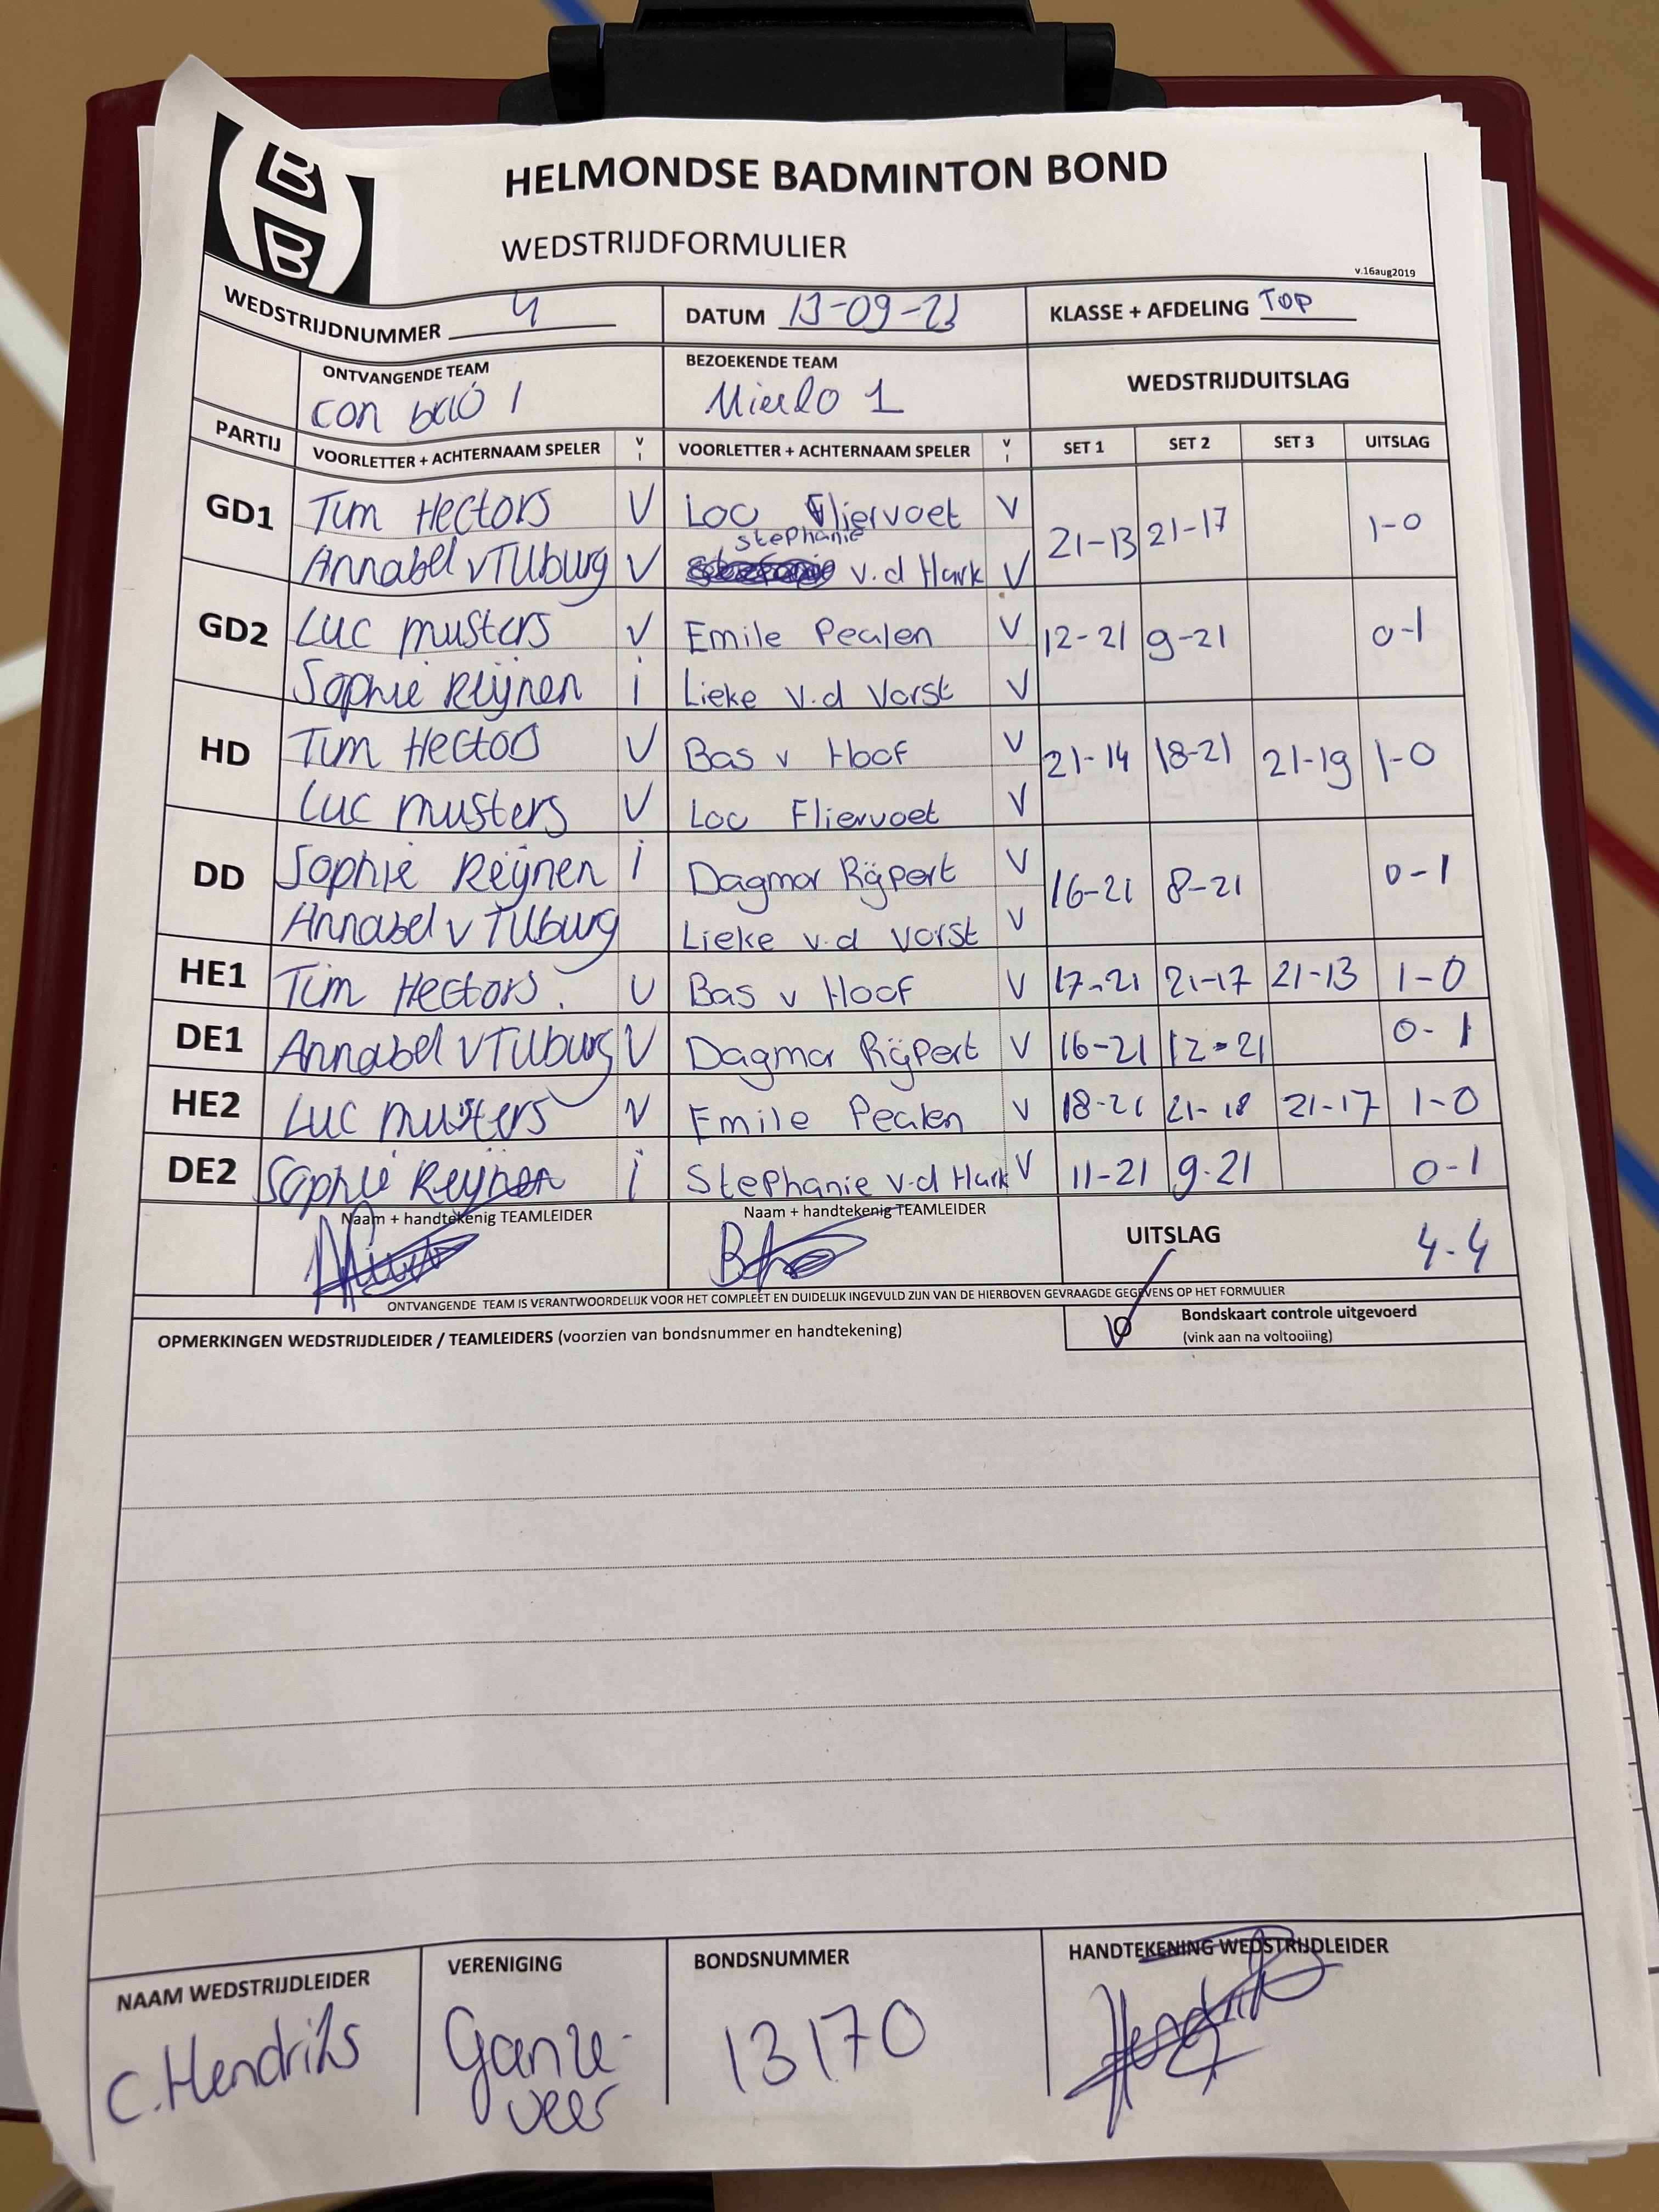 HELMONDSE BADMINTON BOND
WEDSTRIJDFORMULIER
v.16aug2019
WEDSTRIJDNUMMER 4 DATUM 13-09-23 KLASSE + AFDELING TOP
ONTVANGENDE TEAM BEZOEKENDE TEAM WEDSTRIJDUITSLAG
con brió 1 Mierlo 1
PARTIJ VOORLETTER + ACHTERNAAM SPELER V I VOORLETTER + ACHTERNAAM SPELER V I SET 1 SET 2 SET 3 UITSLAG
GD1 Tim Hectors V Loc Fliervoet V 21-13 21-17 1-0
stephanie
Annabel vTilburg V v.d Hurk V
GD2 Luc musters V Emile Pealen V 12-21 9-21 0-1
Sophie Reijnen i Lieke v.d Vorst V
HD Tim Hectors V Bas v Hoof V 21-14 18-21 21-19 1-0
Luc musters V Loc Fliervoet V
DD Sophie Reijnen i Dagmar Rijpert V 16-21 8-21 0-1
Annabel v Tilburg Lieke v.d Vorst V
HE1 Tim Hectors. V Bas v Hoof V 17-21 21-17 21-13 1-0
DE1 Annabel vTilburg V Dagmar Rijpert V 16-21 12-21 0-1
HE2 Luc musters V Emile Pealen V 18-21 21-18 21-17 1-0
DE2 Sophie Reijnen i Stephanie v.d Hurk V 11-21 9-21 0-1
Naam + handtekenig TEAMLEIDER Naam + handtekenig TEAMLEIDER UITSLAG 4-4
ONTVANGENDE TEAM IS VERANTWOORDELIJK VOOR HET COMPLEET EN DUIDELIJK INGEVULD ZIJN VAN DE HIERBOVEN GEVRAAGDE GEGEVENS OP HET FORMULIER
OPMERKINGEN WEDSTRIJDLEIDER / TEAMLEIDERS (voorzien van bondsnummer en handtekening) Bondskaart controle uitgevoerd
(vink aan na voltooiing)
NAAM WEDSTRIJDLEIDER VERENIGING BONDSNUMMER HANDTEKENING WEDSTRIJDLEIDER
C.Hendriks Ganze- 13170
veer